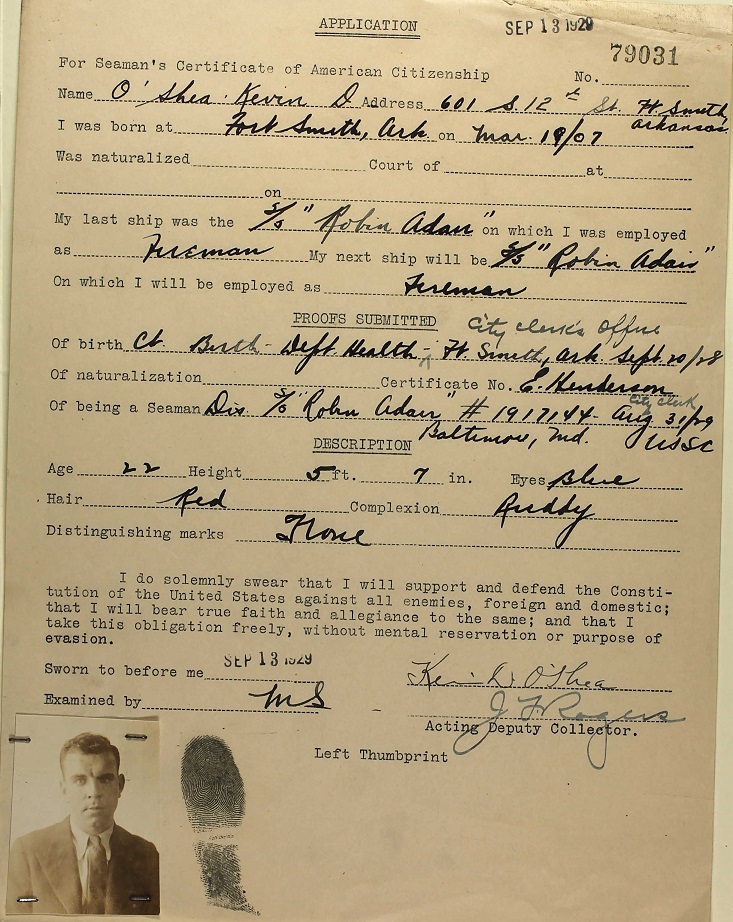 APPLICATION
SEP 13 1929
79031
For Seaman's Certificate of American Citizenship No.
Name O'Shea Kevin D Address 601 S. 12th St. Ft. Smith,
Arkansas
I was born at Fort Smith, Ark. on Mar. 19/07
Was naturalized Court of at
on
My last ship was the S/S "Robin Adair" on which I was employed
as Fireman My next ship will be S/S "Robin Adair"
On which I will be employed as Fireman
PROOFS SUBMITTED
City Clerk's Office
Of birth Ct. Birth - Dept Health - Ft. Smith, Ark. Sept. 20/28
Of naturalization Certificate No. E. Henderson
City Clerk
Of being a Seaman Dis. S/S "Robin Adair" # 1917144 Aug 31/29
Baltimore, Md. USSC
DESCRIPTION
Age 22 Height 5 ft. 7 in. Eyes Blue
Hair Red Complexion Ruddy
Distinguishing marks None
I do solemnly swear that I will support and defend the Consti-
tution of the United States against all enemies, foreign and domestic;
that I will bear true faith and allegiance to the same; and that I
take this obligation freely, without mental reservation or purpose of
evasion.
Sworn to before me SEP 13 1929
Kevin D. O'Shea
Examined by MS
J F Rogers
Acting Deputy Collector.
Left Thumbprint